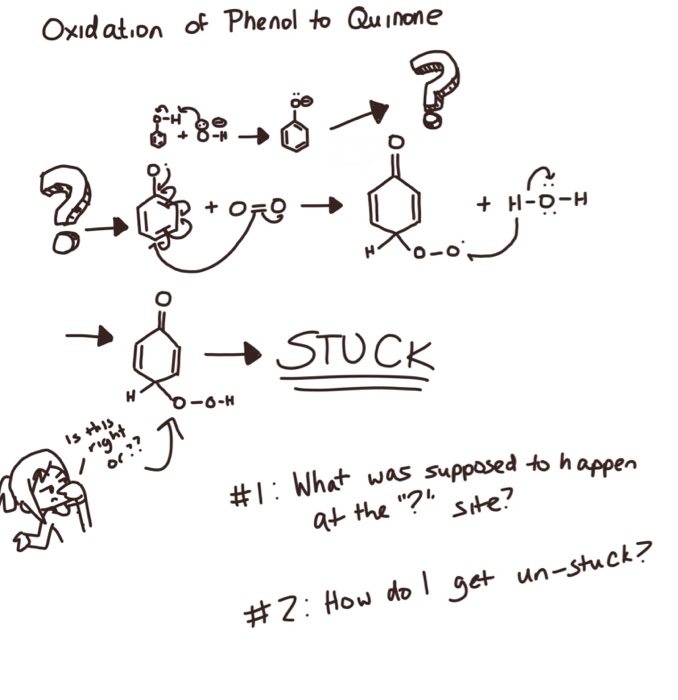 Oxidation of Phenol to Quinone
?
O-H + O-H → O → 
? → O + O=O → O H O-O + H-O-H
→ O H O-O-H → STUCK
Is this
right
or??
#1: What was supposed to happen
at the "?" site?
#2: How do I get un-stuck?